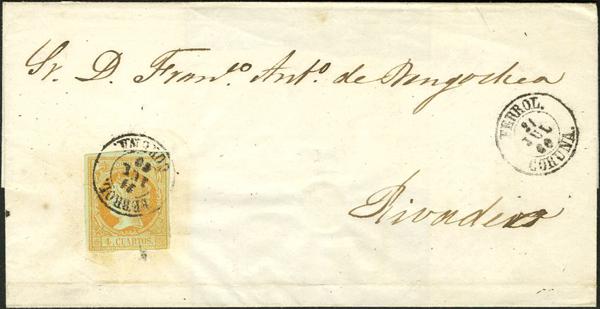 Sr. D. Franco. Anto. de Mengochea
FERROL.
21
JUL
60
CORUÑA.
FERROL.
21
JUL
60
CORUÑA.
4 CUARTOS.
Rivadeo